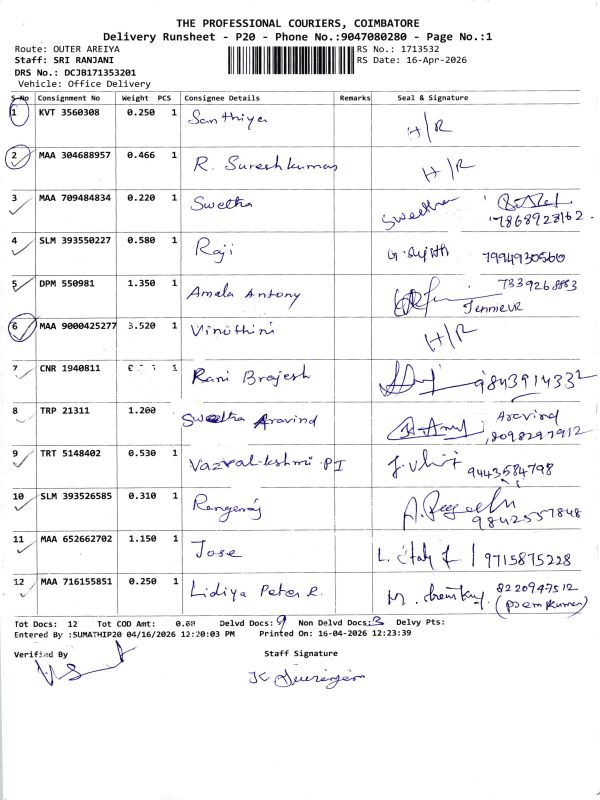 THE PROFESSIONAL COURIERS, COIMBATORE
Delivery Runsheet - P20 - Phone No.:9047080280 - Page No.:1
Route: OUTER AREIYA
RS No.: 1713532
Staff: SRI RANJANI
RS Date: 16-Apr-2026
DRS No.: DCJB171353201
Vehicle: Office Delivery
S No Consignment No Weight PCS Consignee Details Remarks Seal & Signature
1 KVT 3560308 0.250 1 Santhiya H/R
2 MAA 304688957 0.466 1 R. Sureshkumar H/R
3 MAA 709484834 0.220 1 Swetha Swetha 7868928162
4 SLM 393550227 0.580 1 Raji 7994930560
5 DPM 550981 1.350 1 Amala Antony 7339268883
6 MAA 9000425277 3.520 1 Vinothini H/R
7 CNR 1940811 1 Rani Brajesh 9843914332
8 TRP 21311 1.200 Swetha Aravind Aravind 8098297912
9 TRT 5148402 0.530 1 9443584798
10 SLM 393526585 0.310 1 Rangaraj 9842557848
11 MAA 652662702 1.150 1 Jose 9715875228
12 MAA 716155851 0.250 1 Lidiya Peter R. 8220947512
(premkumar)
Tot Docs: 12 Tot COD Amt: 0.00 Delvd Docs: 9 Non Delvd Docs: 3 Delvy Pts:
Entered By :SUMATHIP20 04/16/2026 12:20:03 PM Printed On: 16-04-2026 12:23:39
Verified By Staff Signature